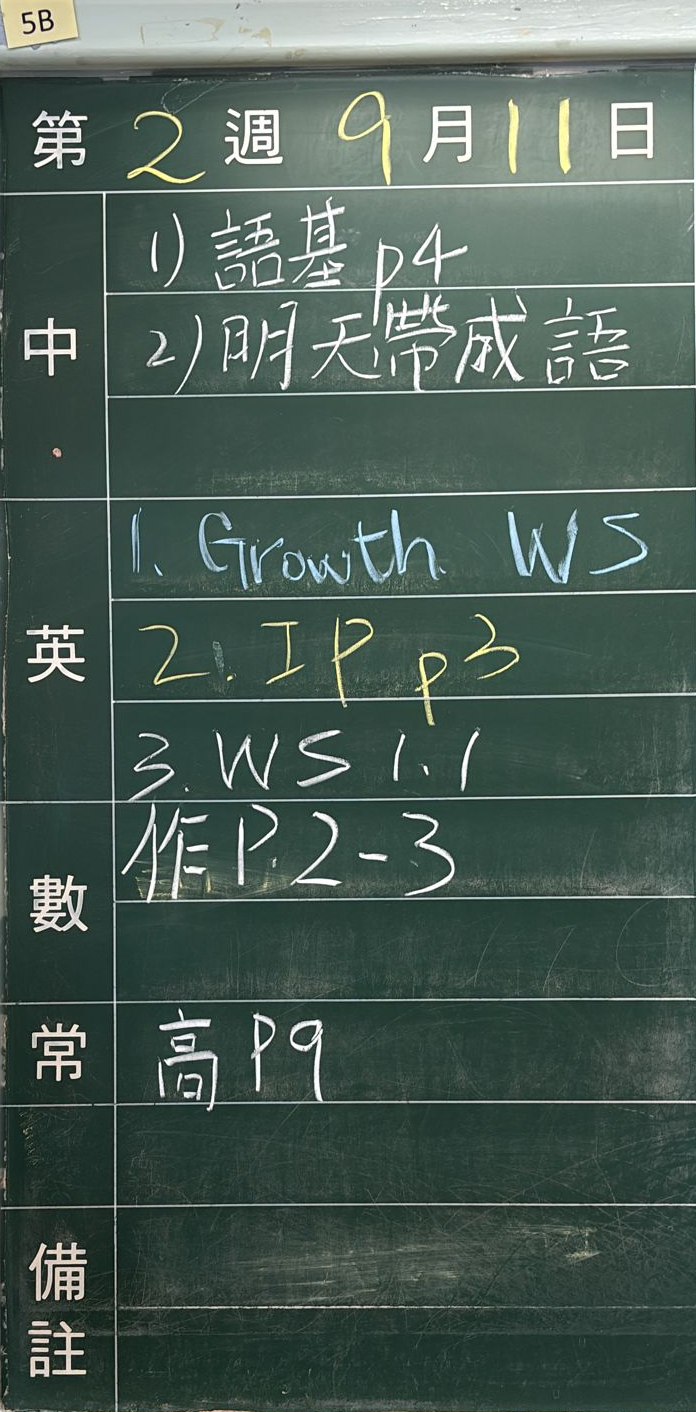 5B
第 2 週 9 月 11 日
中
1) 語基 p4
2) 明天帶成語
英
1. Growth WS
2. IP p3
3. WS 1.1
數
作 P.2-3
常
高 P9
備註